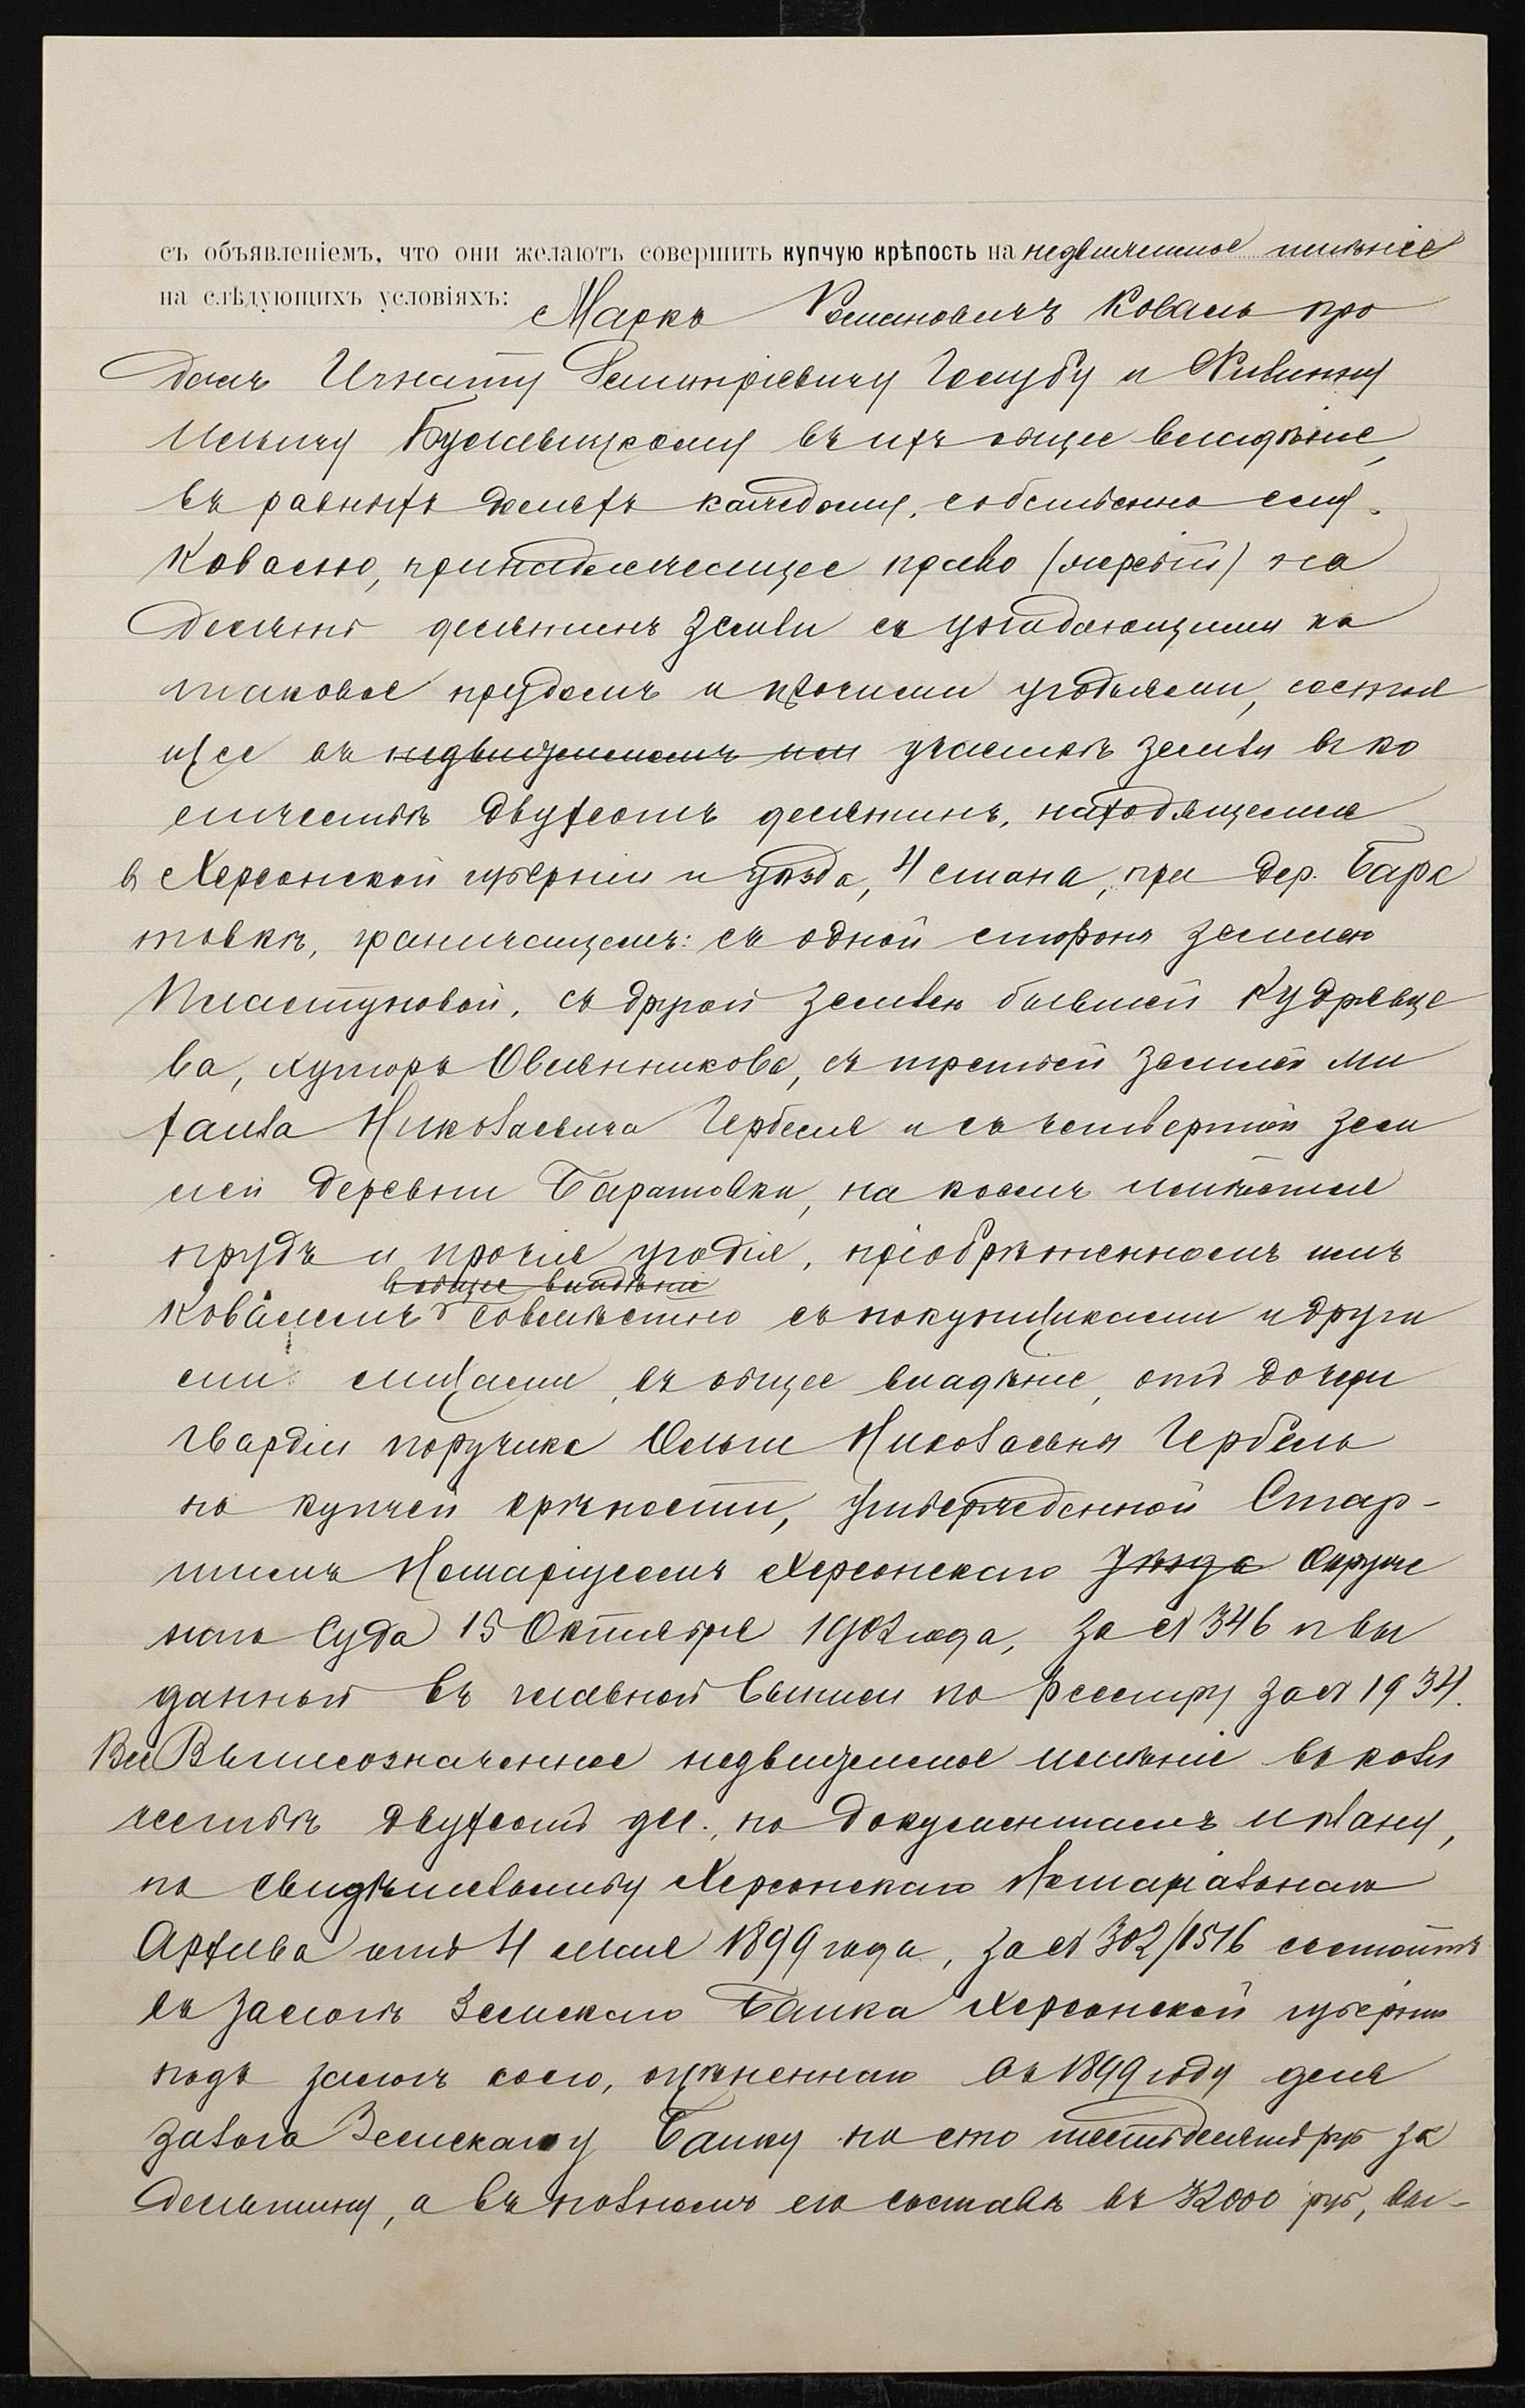 съ объявленіемъ, что они желаютъ совершить купчую крѣпость на недвижимое имѣніе
на слѣдующихъ условіяхъ: Маркъ Романовичъ Коваль про
далъ Игнату Димитріевичу Голубу и Филиппу
Ильичу Буслевицкому въ ихъ общее владѣніе,
въ равныхъ доляхъ каждому, собственно ему
Ковалю, принадлежащее право (жеребій) на
десять десятинъ земли съ упадающими на
таковое прудомъ и прочими угодьями, состоя
щее въ недвижимомъ им участкѣ земли въ ко
личествѣ двухсотъ десятинъ, находящемся
въ Херсонской губерніи и уѣзда, 4 стана, при дер. Бара
товкѣ, граничащемъ: съ одной стороны землею
Пластуновой, съ другой землею бывшей Кудрявце
ва, хуторъ Овсянникова, съ третьей землей Ми
хаила Николаевича Гербеля и съ четвертой зем
лей деревни Баратовки, на коемъ имѣются
прудъ и прочія угодія, пріобрѣтенномъ имъ
въ общее владѣніе
Ковалемъ совмѣстно съ покупщиками и други
ми лицами, въ общее владѣніе, отъ дочери
гвардіи поручика Ольги Николаевны Гербель
по купчей крѣпости, утвержденной Стар-
шимъ Нотаріусомъ Херсонскаго Уѣзда Окруж
наго Суда 15 Октября 1902 года, за № 346 и вы
данной въ главной выписи по реестру за № 1934.
Все Вышеозначенное недвижимое имѣніе въ коли
чествѣ двухсотъ дес., по документамъ и плану,
по свидѣтельству Херсонскаго Нотаріальнаго
Архива отъ 4 мая 1899 года, за № 302/1516 состоитъ
въ залогѣ Земскаго Банка Херсонской губерніи
подъ залогъ коего, оцѣненнаго въ 1899 году для
залога Земскому Банку по сто шестьдесятъ руб за
десятину, а въ полномъ его составѣ въ 32000 руб, вы-